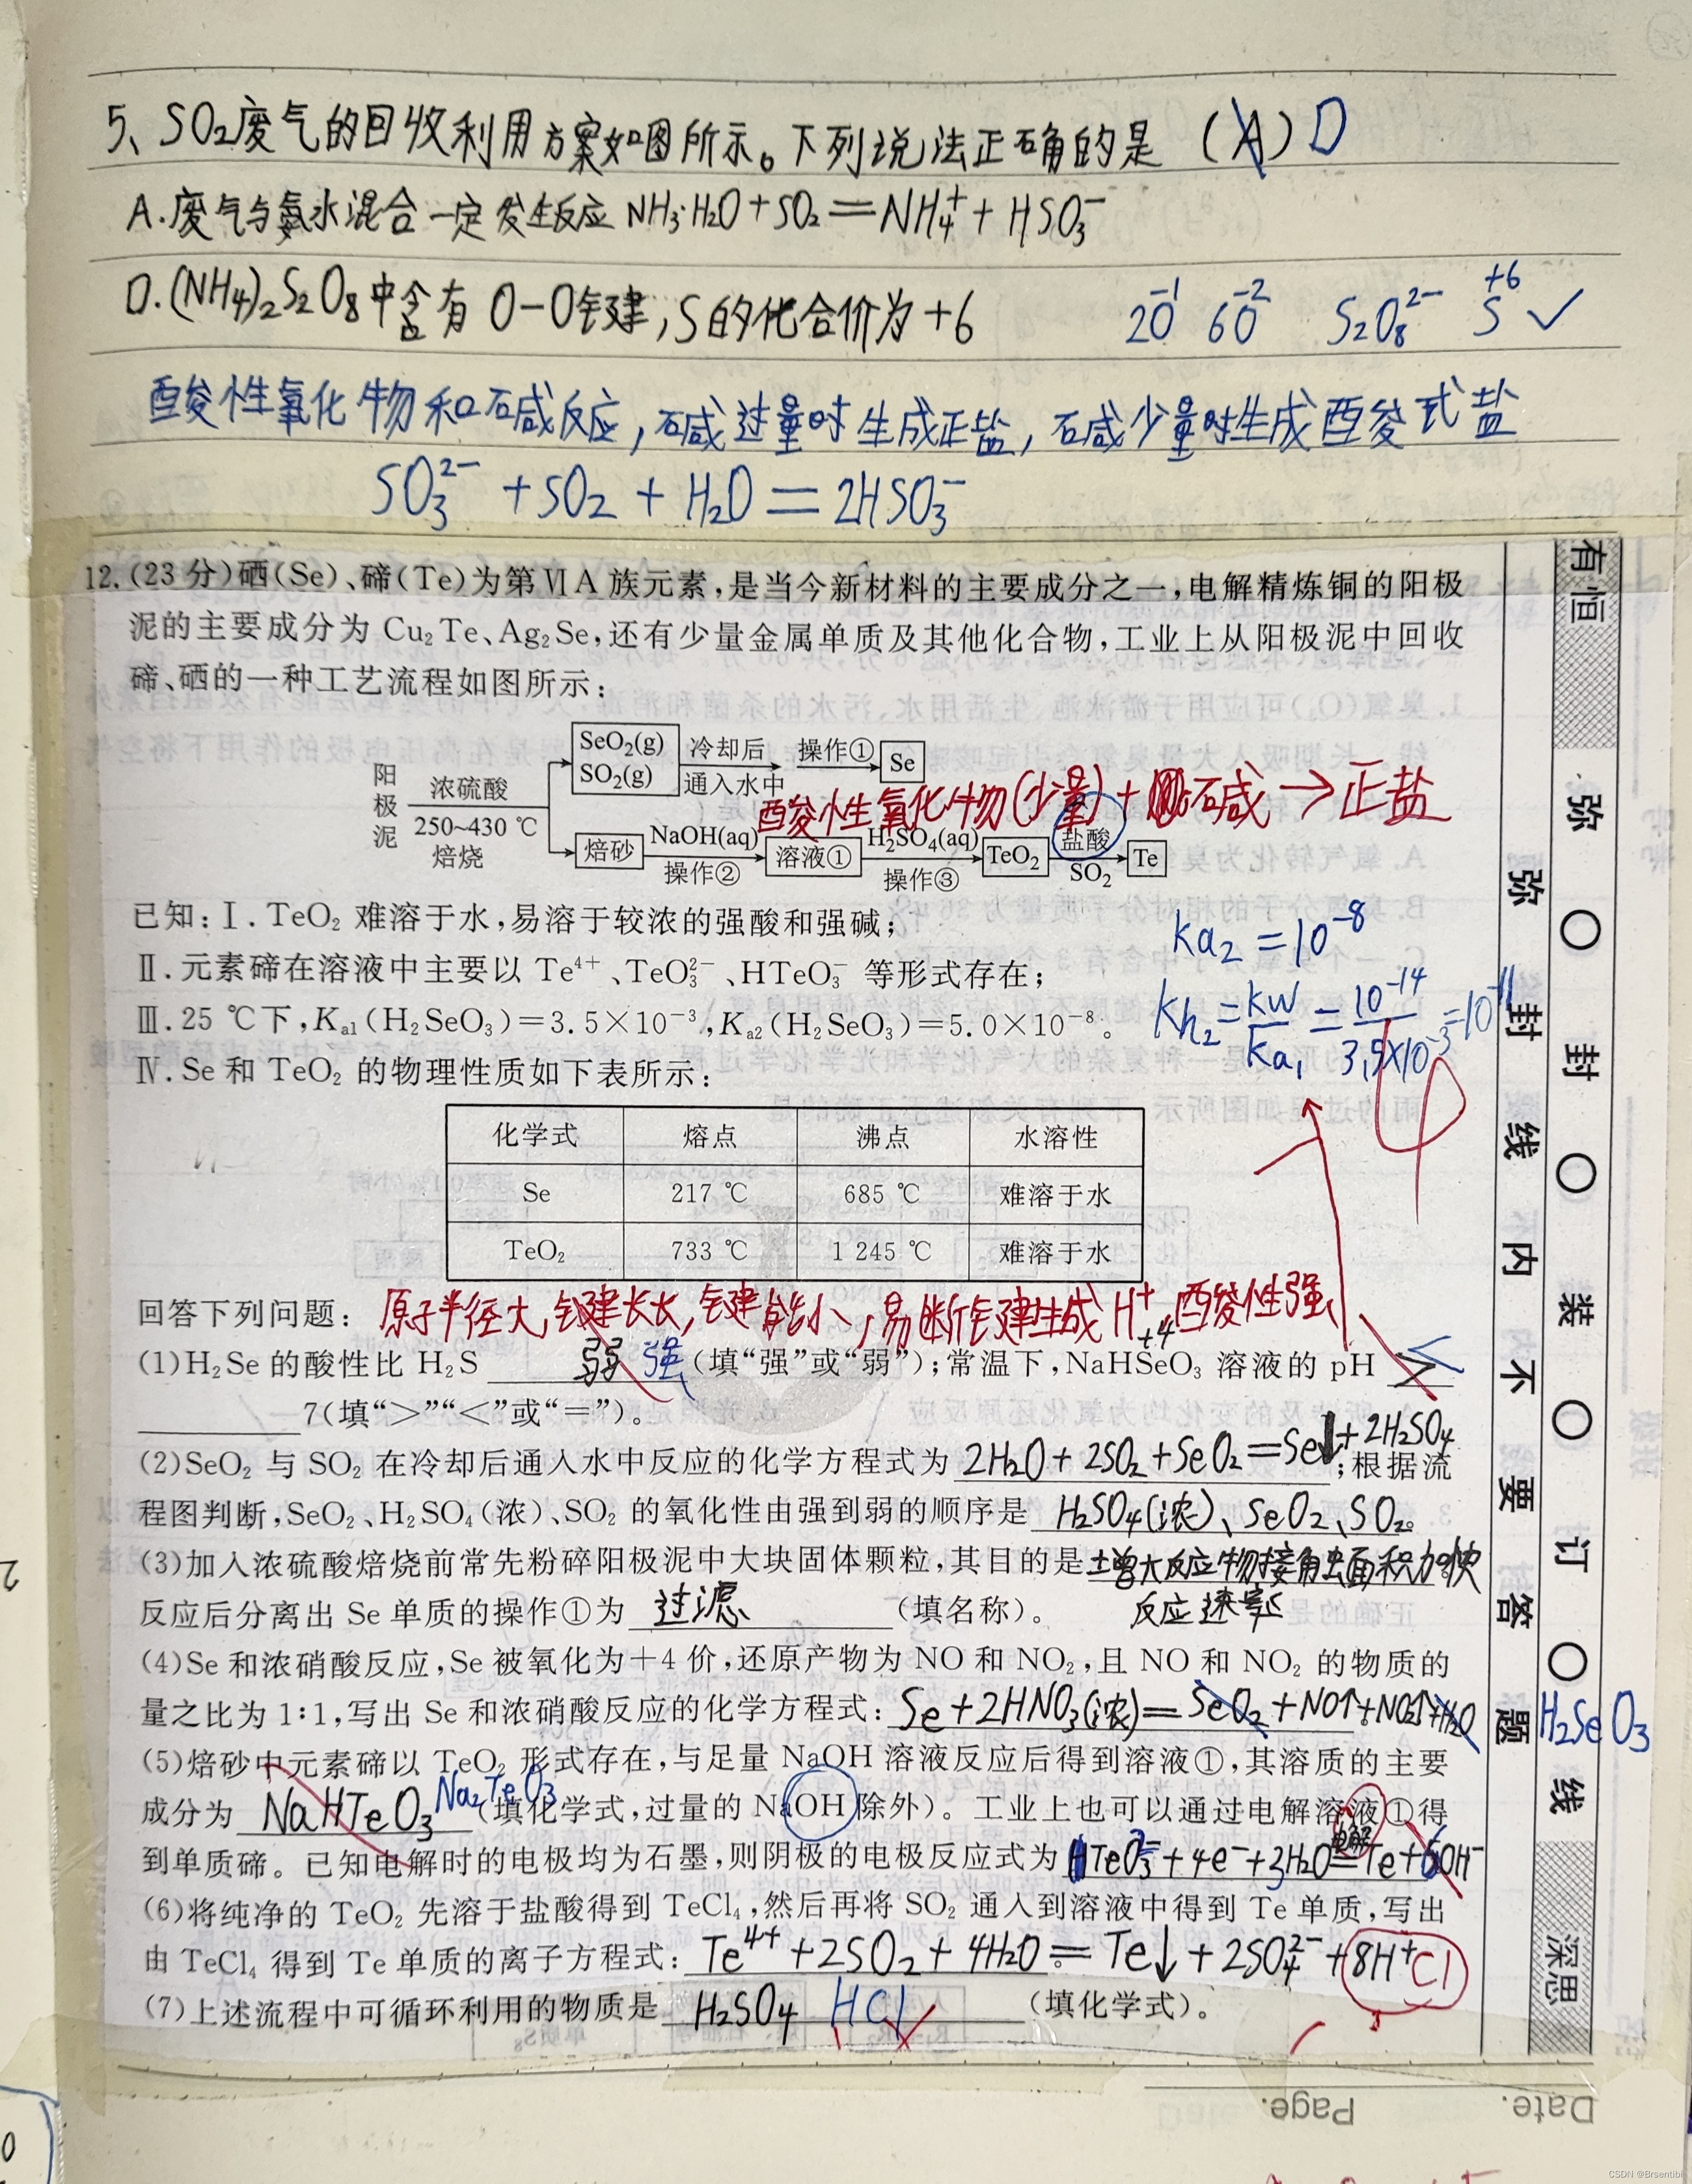 5、SO₂废气的回收利用方案如图所示。下列说法正确的是（A）D
A.废气与氨水混合一定发生反应 NH₃·H₂O+SO₂=NH₄⁺+HSO₃⁻
D.(NH₄)₂S₂O₈中含有 O-O键,S的化合价为+6 2O⁻¹ 6O⁻² S₂O₈²⁻ S⁺⁶ ✓
酸性氧化物和碱反应,碱过量时生成正盐,碱少量时生成酸式盐
SO₃²⁻+SO₂+H₂O=2HSO₃⁻
12.(23分)硒(Se)、碲(Te)为第ⅥA族元素,是当今新材料的主要成分之一,电解精炼铜的阳极
泥的主要成分为 Cu₂Te、Ag₂Se,还有少量金属单质及其他化合物,工业上从阳极泥中回收
碲、硒的一种工艺流程如图所示:
阳极泥 浓硫酸 250~430 ℃ 焙烧
SeO₂(g) SO₂(g) 冷却后 通入水中 操作① Se
酸性氧化物(少量)+碱→正盐
焙砂 NaOH(aq) 操作② 溶液① H₂SO₄(aq) 操作③ TeO₂ 盐酸 SO₂ Te
已知:Ⅰ.TeO₂ 难溶于水,易溶于较浓的强酸和强碱;
Ka₂=10⁻⁸
Ⅱ.元素碲在溶液中主要以 Te⁴⁺、TeO₃²⁻、HTeO₃⁻ 等形式存在;
Ⅲ.25 ℃下,Kₐ₁(H₂SeO₃)=3.5×10⁻³,Kₐ₂(H₂SeO₃)=5.0×10⁻⁸。
Kh₂=Kw/Ka₁=10⁻¹⁴/3.5×10⁻³=10⁻¹¹
Ⅳ.Se 和 TeO₂ 的物理性质如下表所示:
化学式 熔点 沸点 水溶性
Se 217 ℃ 685 ℃ 难溶于水
TeO₂ 733 ℃ 1 245 ℃ 难溶于水
回答下列问题: 原子半径大,键长长,键能小,易断键生成H⁺,酸性强
(1)H₂Se 的酸性比 H₂S 弱 强(填“强”或“弱”);常温下,NaHSeO₃ 溶液的 pH > <
7(填“>”“<”或“=”)。 +4
(2)SeO₂ 与 SO₂ 在冷却后通入水中反应的化学方程式为 2H₂O+2SO₂+SeO₂=Se↓+2H₂SO₄;根据流
程图判断,SeO₂、H₂SO₄(浓)、SO₂ 的氧化性由强到弱的顺序是 H₂SO₄(浓)、SeO₂、SO₂。
(3)加入浓硫酸焙烧前常先粉碎阳极泥中大块固体颗粒,其目的是增大反应物接触面积加快
反应速率
反应后分离出 Se 单质的操作①为 过滤 (填名称)。
(4)Se 和浓硝酸反应,Se 被氧化为+4 价,还原产物为 NO 和 NO₂,且 NO 和 NO₂ 的物质的
量之比为 1∶1,写出 Se 和浓硝酸反应的化学方程式:Se+2HNO₃(浓)=SeO₂+NO↑+NO₂↑+H₂O H₂SeO₃
(5)焙砂中元素碲以 TeO₂ 形式存在,与足量 NaOH 溶液反应后得到溶液①,其溶质的主要
成分为 NaHTeO₃ Na₂TeO₃(填化学式,过量的 NaOH 除外)。工业上也可以通过电解溶液①得
到单质碲。已知电解时的电极均为石墨,则阴极的电极反应式为 TeO₃²⁻+4e⁻+3H₂O=Te+6OH⁻
(6)将纯净的 TeO₂ 先溶于盐酸得到 TeCl₄,然后再将 SO₂ 通入到溶液中得到 Te 单质,写出
由 TeCl₄ 得到 Te 单质的离子方程式:Te⁴⁺+2SO₂+4H₂O=Te↓+2SO₄²⁻+8H⁺ Cl
(7)上述流程中可循环利用的物质是 H₂SO₄ HCl (填化学式)。
弥 封 线 内 不 要 答 题
有恒
弥 封 装 订 线
深思
Date.
Page.
CSDN @Brsentibi